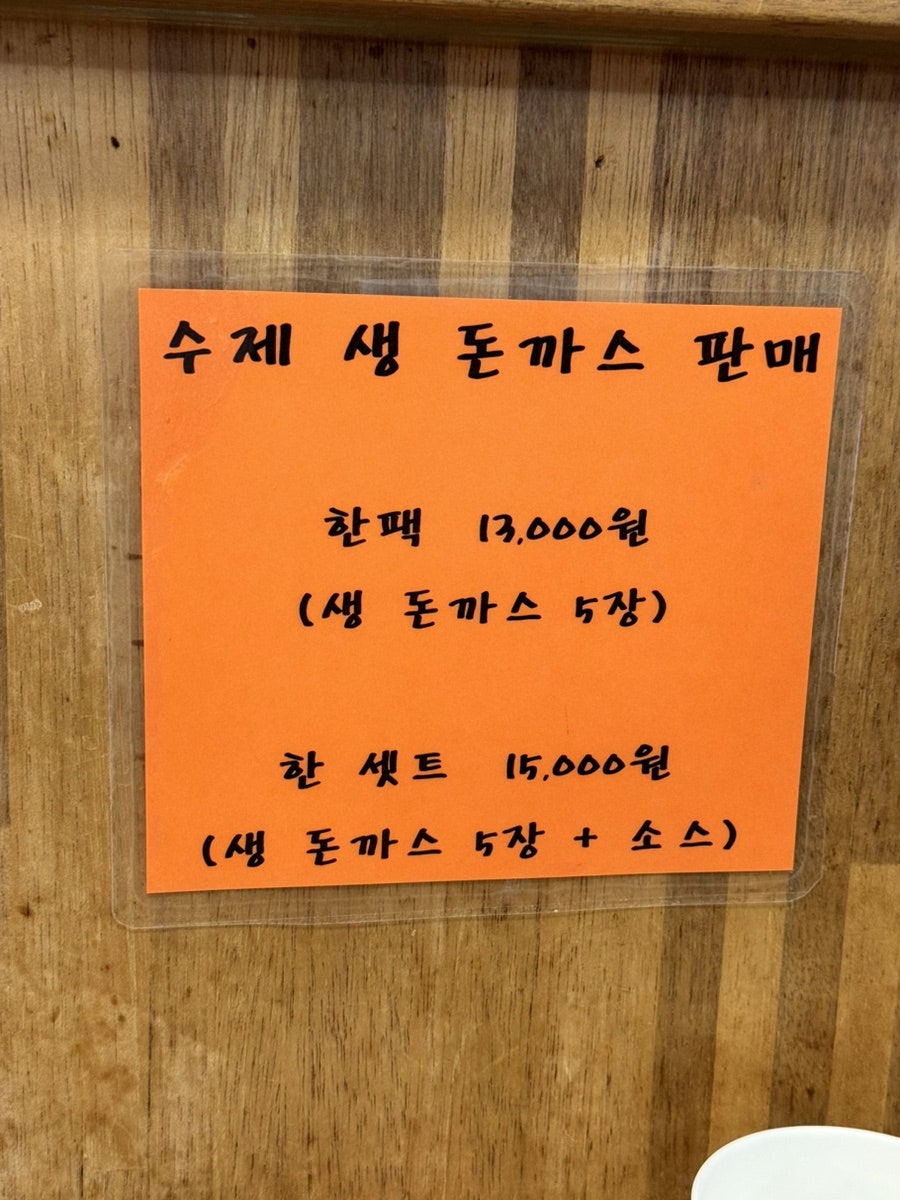 수제 생 돈까스 판매
한팩 13,000원
(생 돈까스 5장)
한 셋트 15,000원
(생 돈까스 5장 + 소스)